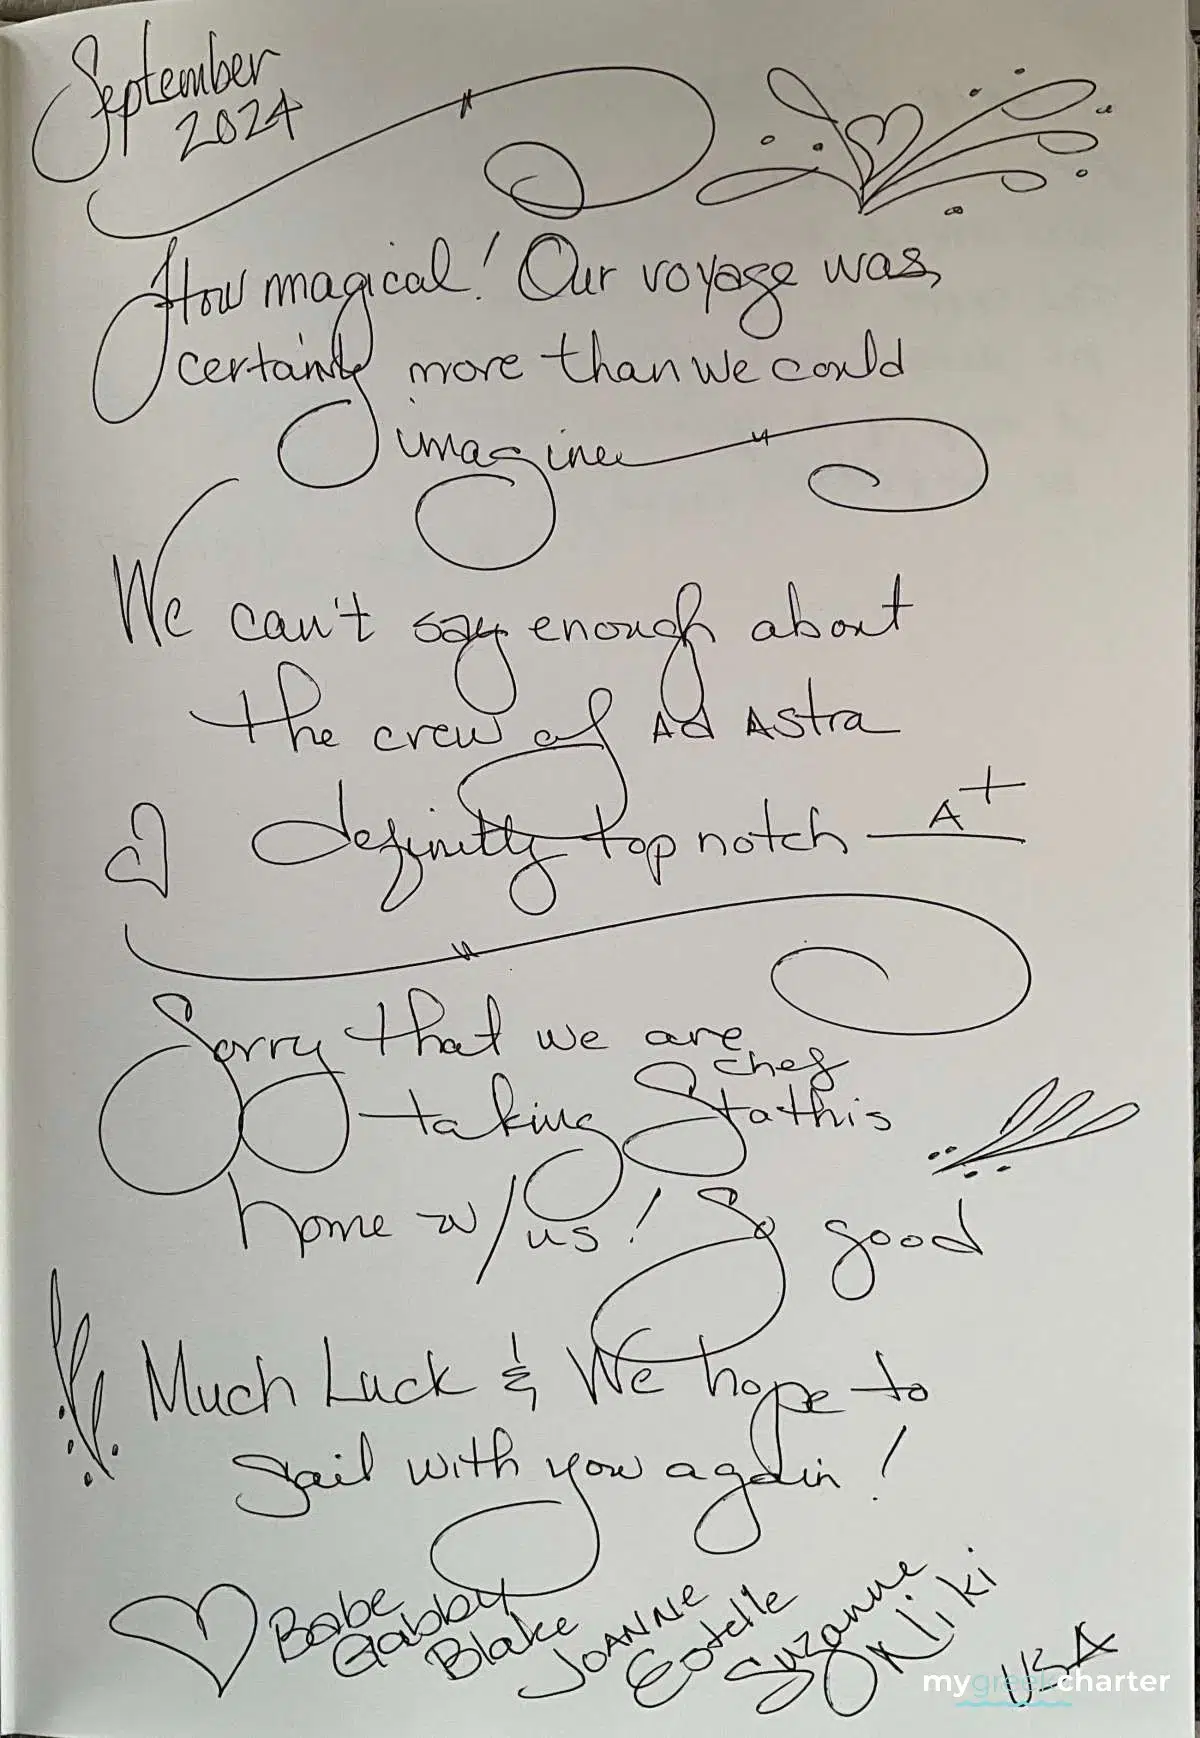 September
2024
How magical! Our voyage was,
certainly more than we could
imagine
We can't say enough about
the crew of Ad Astra
definitly top notch A+
Sorry that we are
chef
taking Stathis
home w/us! So good
Much Luck & We hope to
sail with you again!
Babe
Gabby
Blake
JOANNE
Estelle
Suzanne
Niki
USA
mygreekcharter